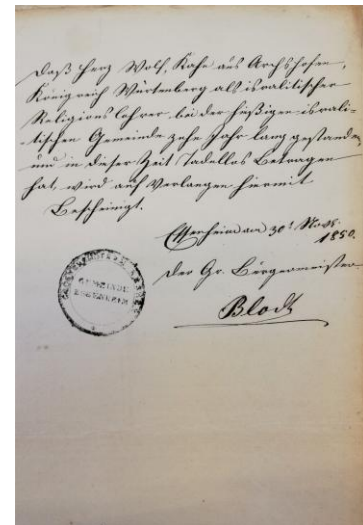 Daß Herz Wolf, Kahn aus Archshofen,
Königreich Würtemberg als israelitischer
Religionslehrer bei der hiesigen israeli-
tischen Gemeinde zehn Jahr lang gestanden
und in dieser Zeit tadellos betragen
hat, wird auf Verlangen hiermit
Bescheinigt.
am 30t Novb:
1850.
Der Gr. Bürgermeister
GEMEINDE
Blodt